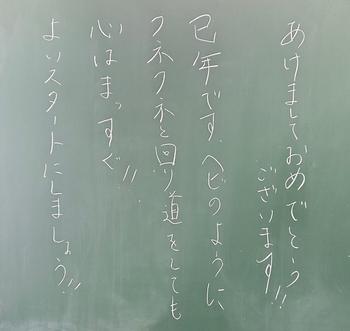 あけましておめでとう
ございます!!
巳年です。ヘビのように、
クネクネと回り道をしても
心はまっすぐ!!
よいスタートにしましょう!!